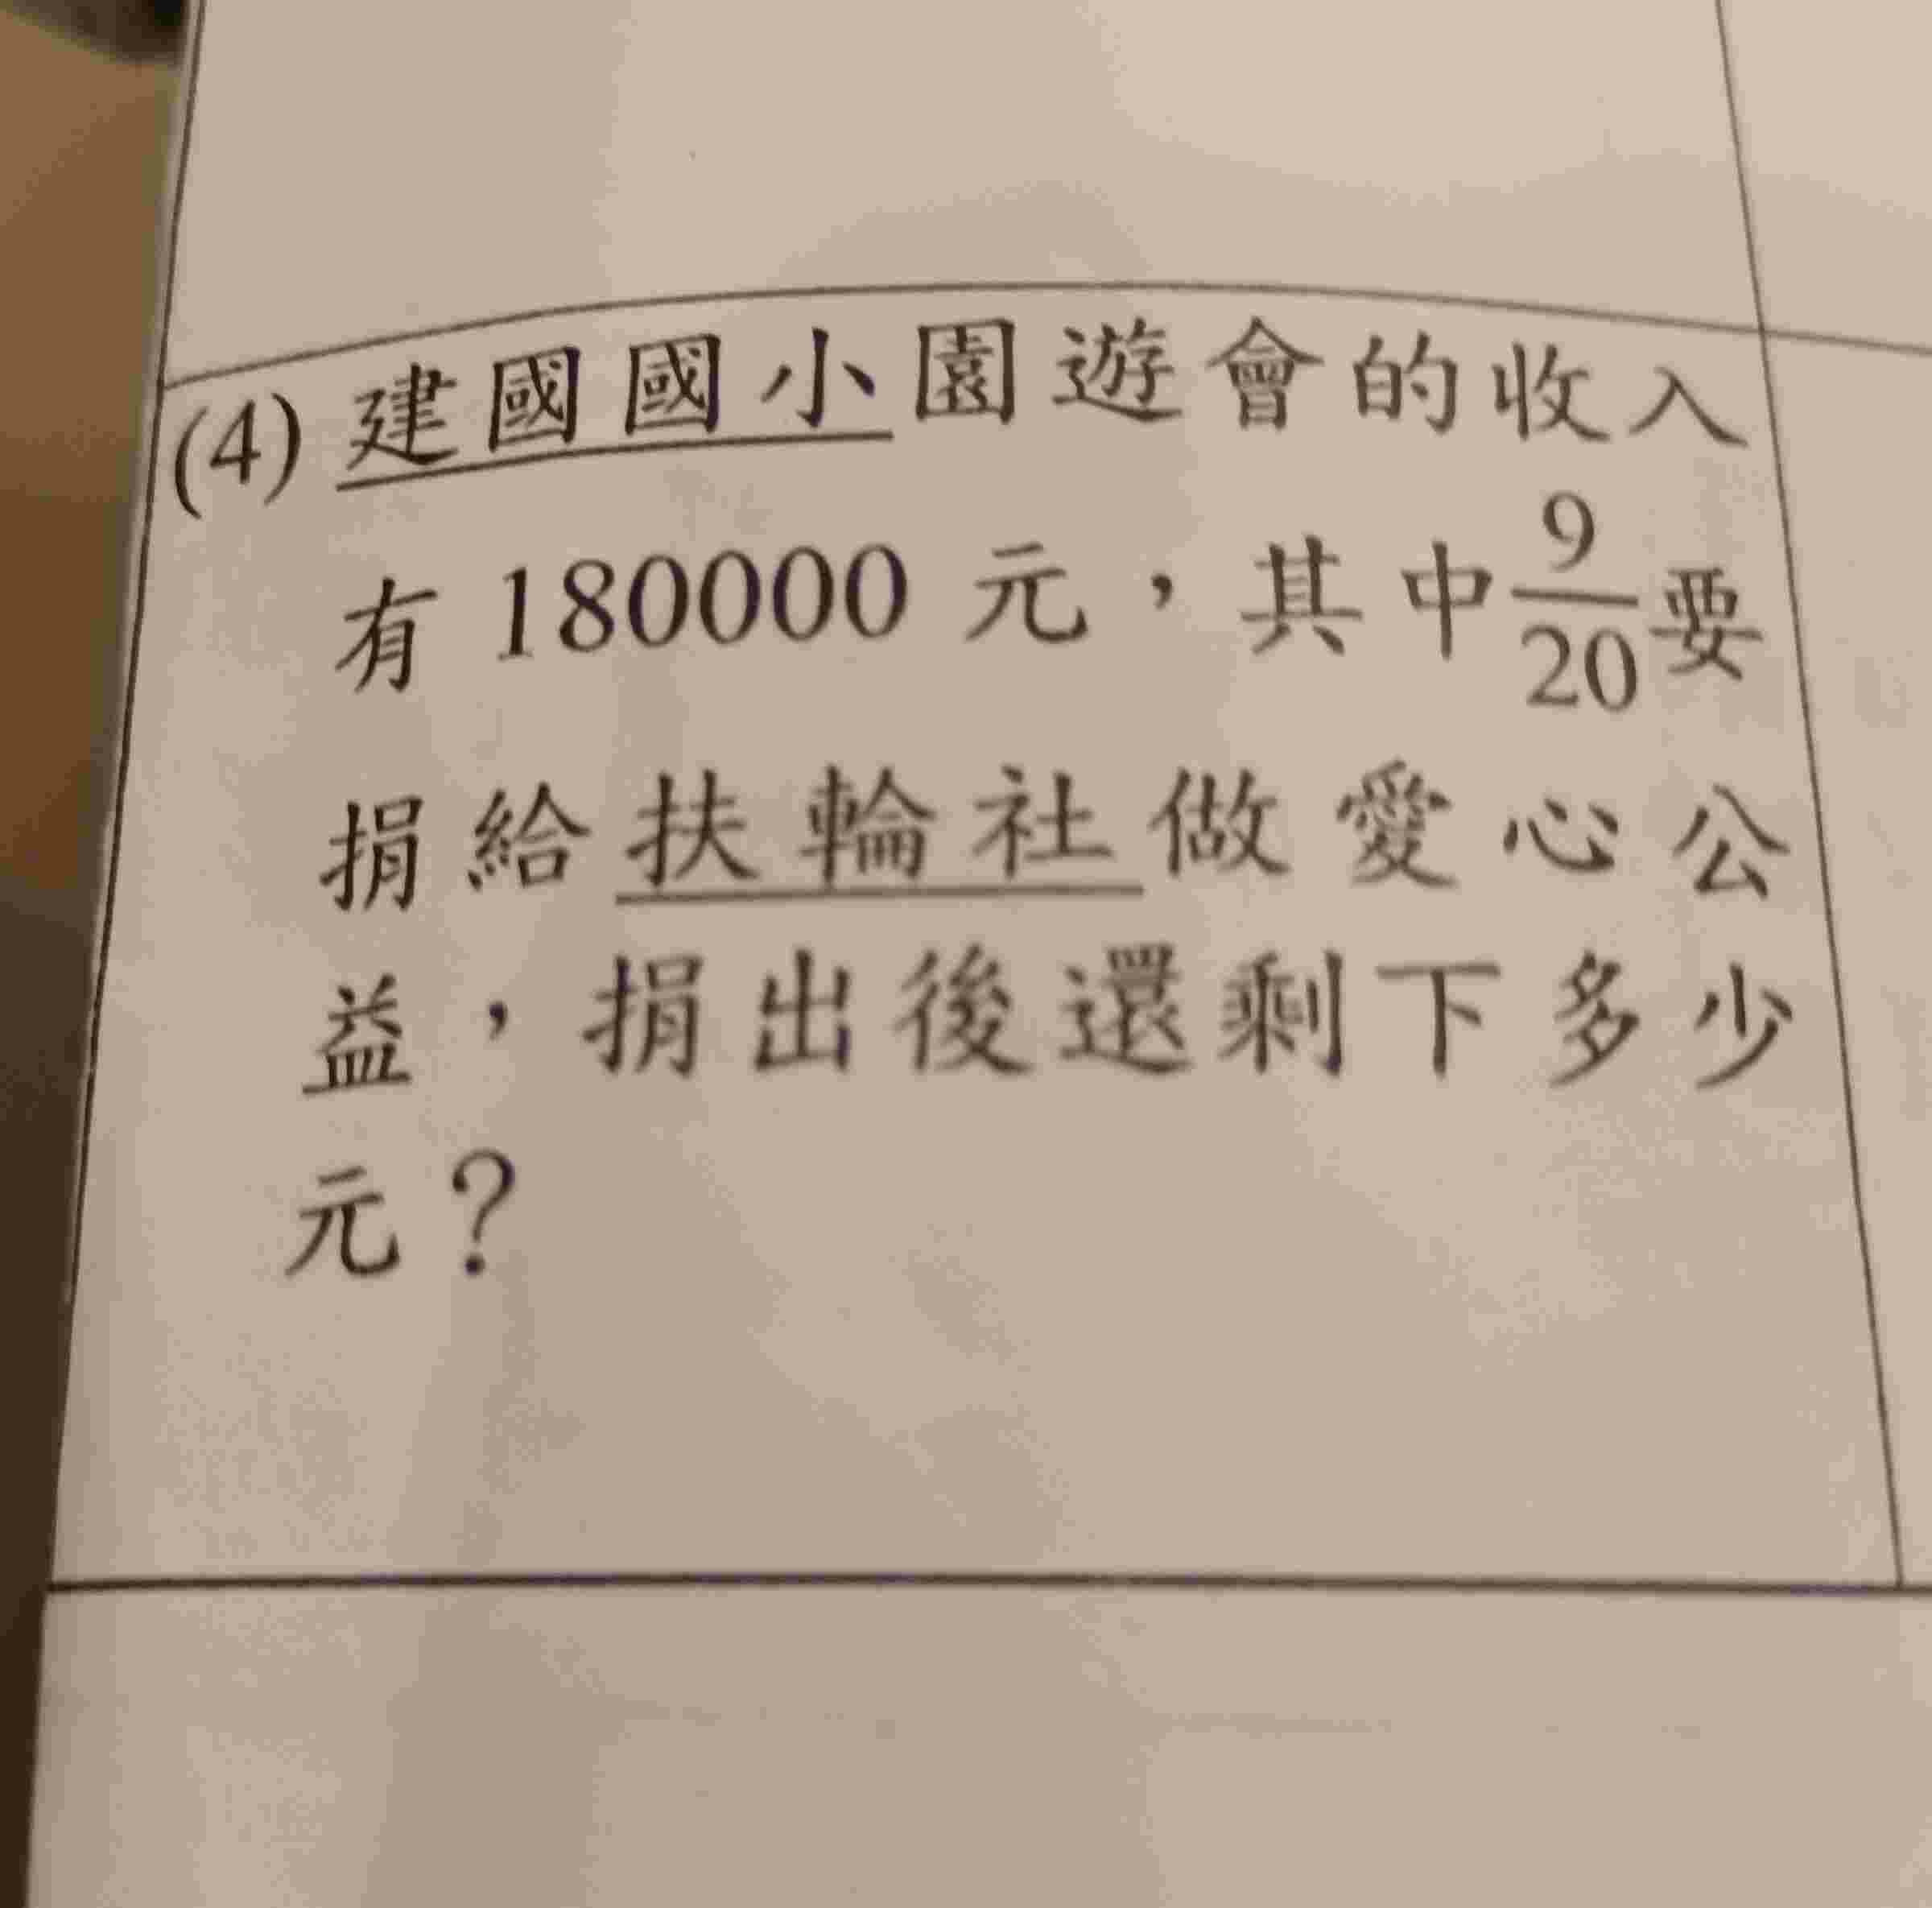 (4) 建國國小園遊會的收入
有 180000 元，其中9/20要
捐給扶輪社做愛心公
益，捐出後還剩下多少
元？